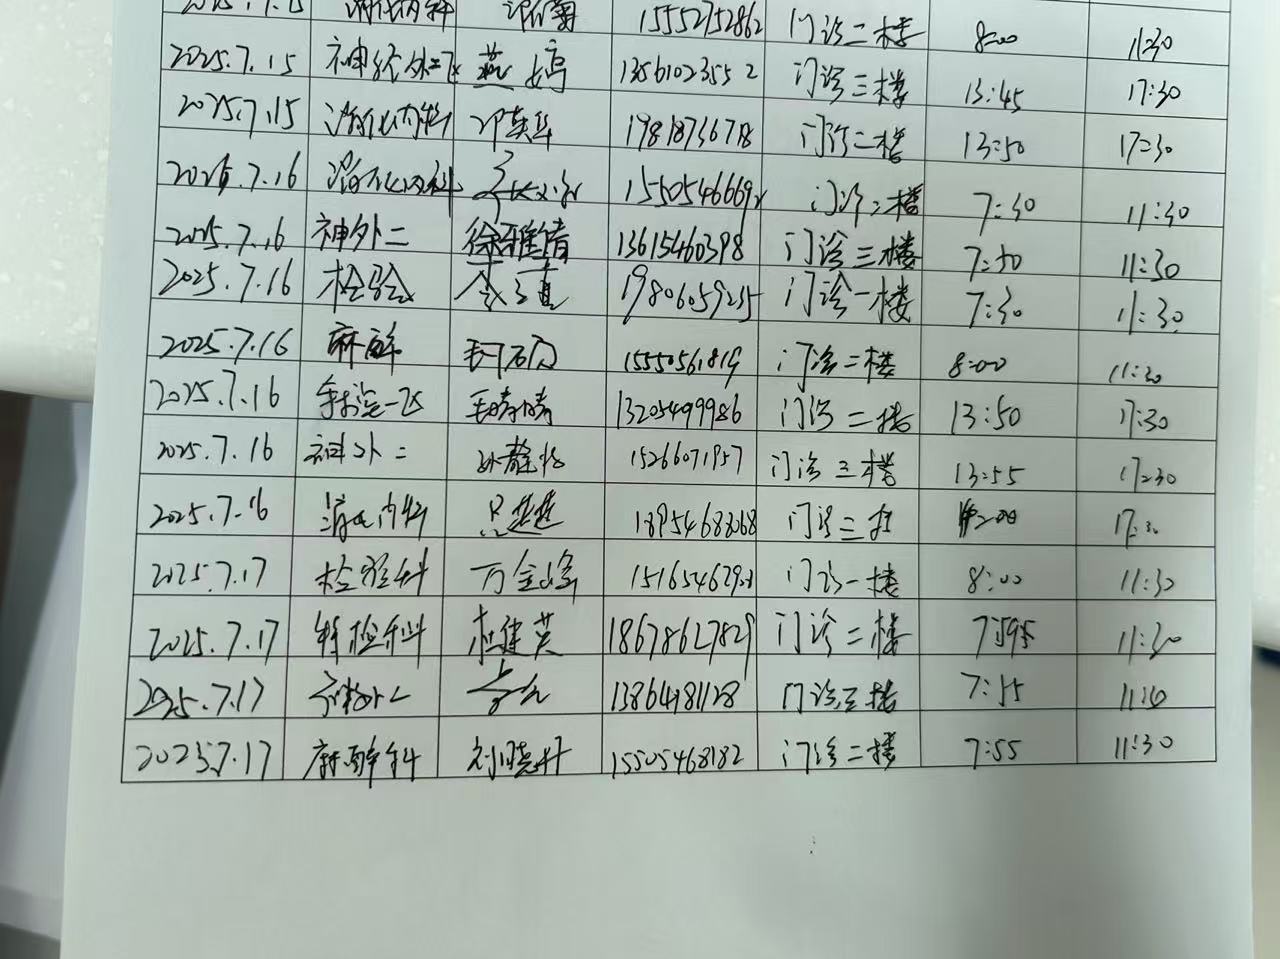 2025.7.15 消化内科 15552752862 门诊二楼 8:00 11:30
2025.7.15 神经外二区 燕婷 13561023552 门诊三楼 13:45 17:30
2025.7.15 消化内科 邓英华 19818736718 门诊二楼 13:50 17:30
2025.7.16 消化内科 门诊二楼 7:30 11:30
2025.7.16 神外二 徐雅倩 13615460398 门诊三楼 7:50 11:30
2025.7.16 检验 19806059235 门诊一楼 7:30 11:30
2025.7.16 麻醉 15550561819 门诊二楼 8:00 11:30
2025.7.16 手术室一区 毛晴晴 13205499986 门诊二楼 13:50 17:30
2025.7.16 神外二 15266071957 门诊三楼 13:55 17:30
2025.7.16 消化内科 吕楚楚 18954688068 门诊二楼 17:30
2025.7.17 检验科 万金峰 门诊一楼 8:00 11:30
2025.7.17 特检科 杜建英 18678627829 门诊二楼 11:30
2025.7.17 13864781128 门诊三楼 7:55
2025.7.17 麻醉科 刘晓丹 15505468182 门诊二楼 7:55 11:30